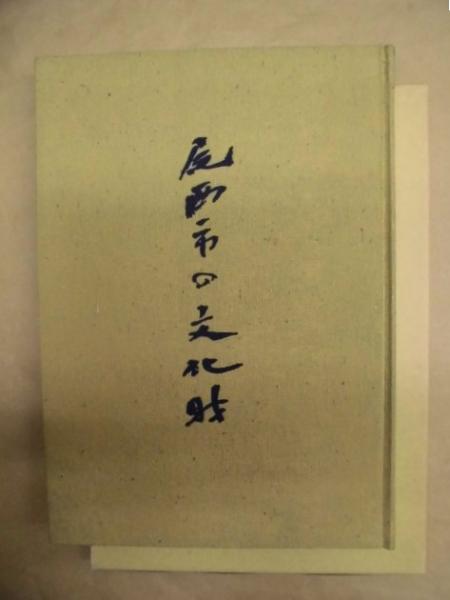 尾西市の文化財